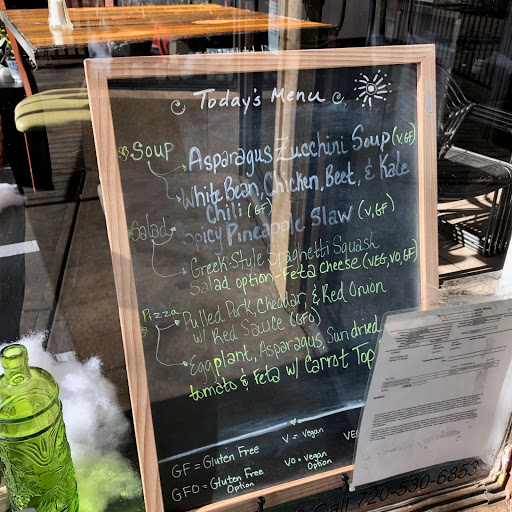 Today's Menu
Soup
Asparagus Zucchini Soup (V, GF)
White Bean, Chicken, Beet, & Kale
Chili (GF)
Salad
Spicy Pineapple Slaw (V, GF)
Greek-Style Spaghetti Squash
Salad option - Feta Cheese (VEG, VO, GF)
Pizza
Pulled Pork, Cheddar, & Red Onion
w/ Red Sauce (GFO)
Eggplant, Asparagus, Sundried
tomato & Feta w/ Carrot Top
GF = Gluten Free
V = Vegan
GFO = Gluten Free
Option
VO = Vegan
Option
Call 720-530-6853